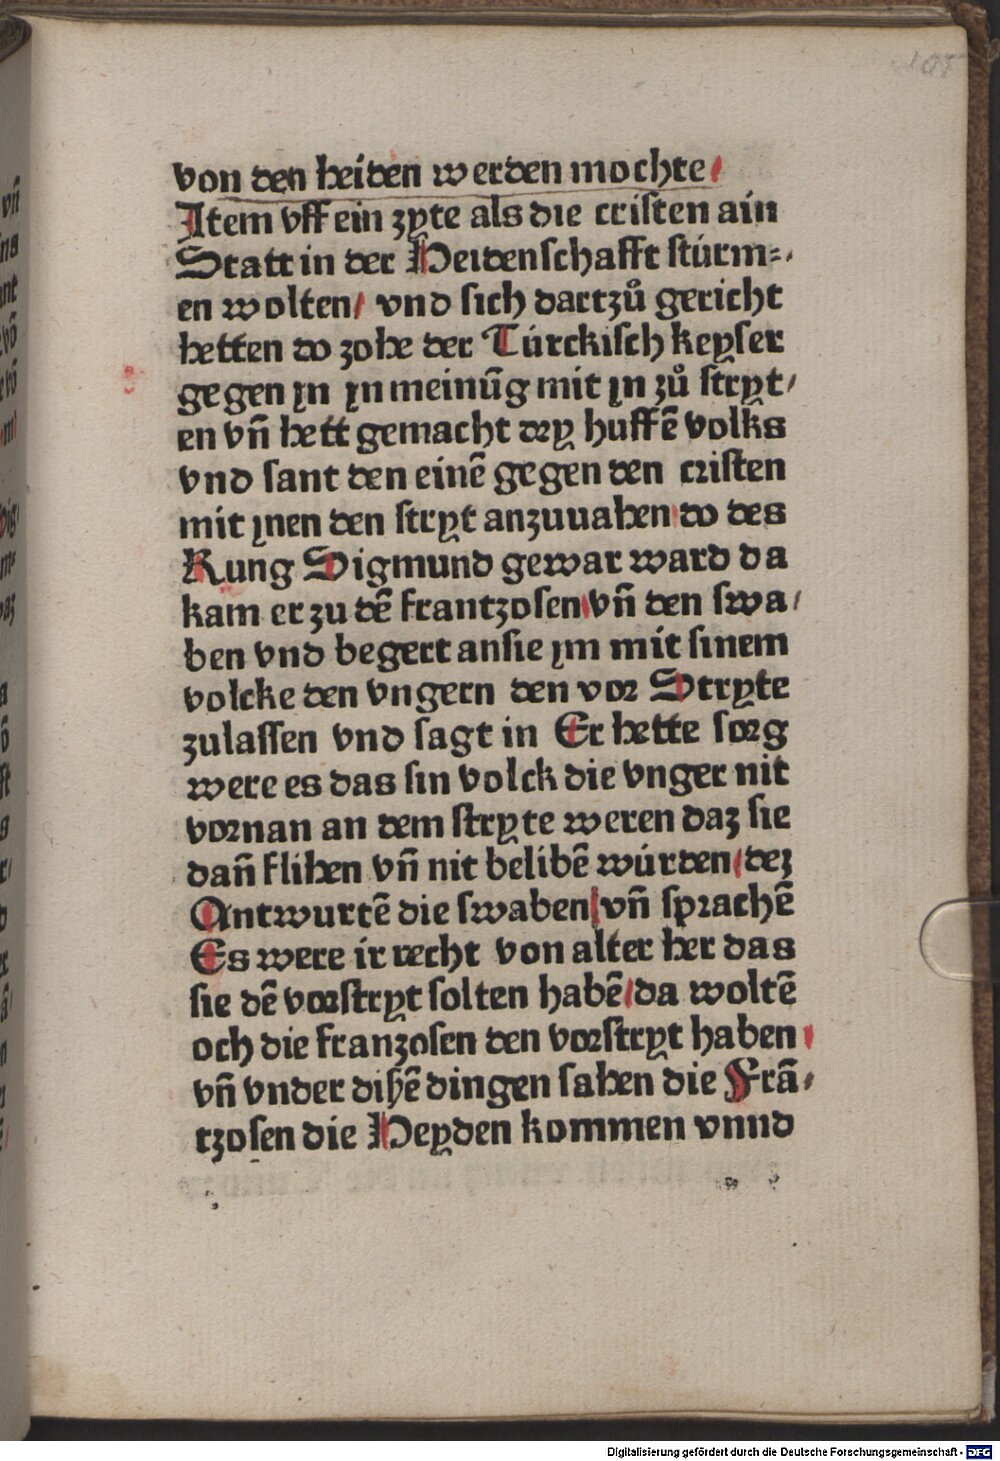 105
von den heiden werden mochte/
Item vff ein zyte als die cristen ain
Statt in der Heidenschafft stúrm=
en wolten/ vnd sich dartzů gericht
hetten do zohe der Túrckisch keyser
gegen yn yn meinūg mit yn zů stryt/
en vn̄ hett gemacht dry huffē volks
vnd sant den einē gegen den cristen
mit ynen den stryt anzuuahen do des
Kung Sigmund gewar ward da
kam er zu dē frantzosen/ vn̄ den swa/
ben vnd begert an sie ym mit sinem
volcke den vngern den vor Stryte
zulassen vnd sagt in Er hette sorg
were es das sin volck die vnger nit
vornan an dem stryte weren daz sie
dan̄ flihen vn̄ nit belibē wúrden/ dez
Antwurtē die swaben/ vn̄ sprachē
Es were ir recht von alter her das
sie dē vorstryt solten habē/ da woltē
och die franzosen den vorstryt haben/
vn̄ vnder dißē dingen sahen die Frā/
tzosen die Heyden kommen vnnd
Digitalisierung gefördert durch die Deutsche Forschungsgemeinschaft - DFG